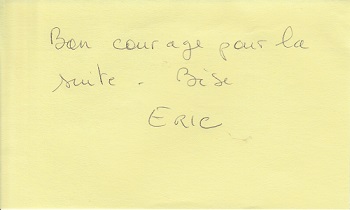 Bon courage pour la
suite. Bise
ERIC